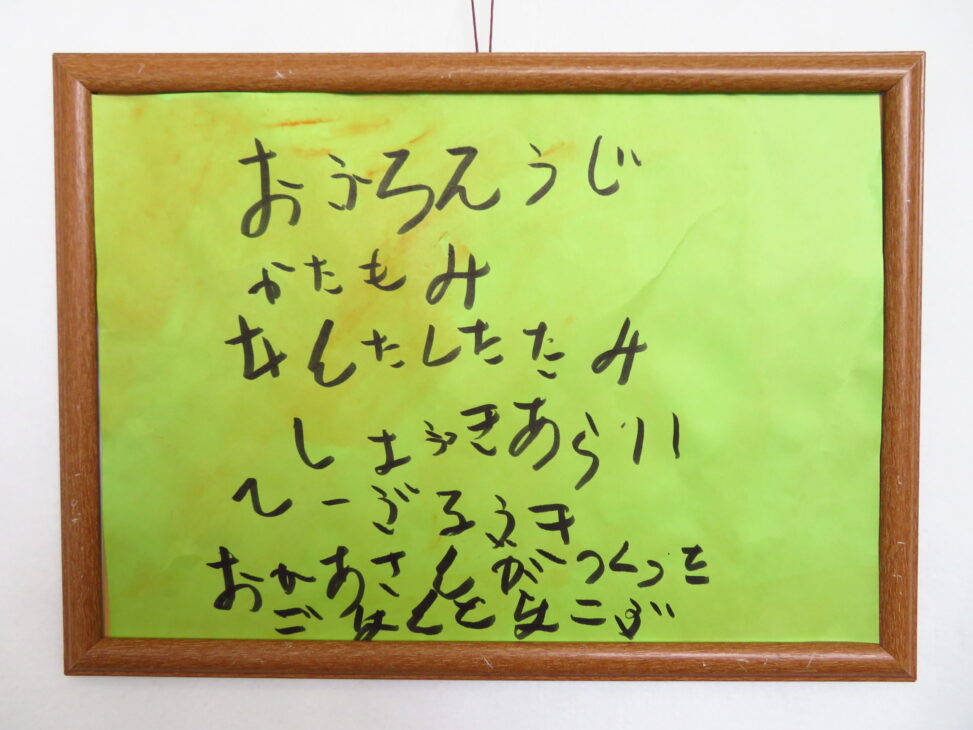 おふろそうじ
かたもみ
せんたしたたみ
しょっきあらい
てーぶるふき
おかあさんがつくった
ごはんをはこぶ